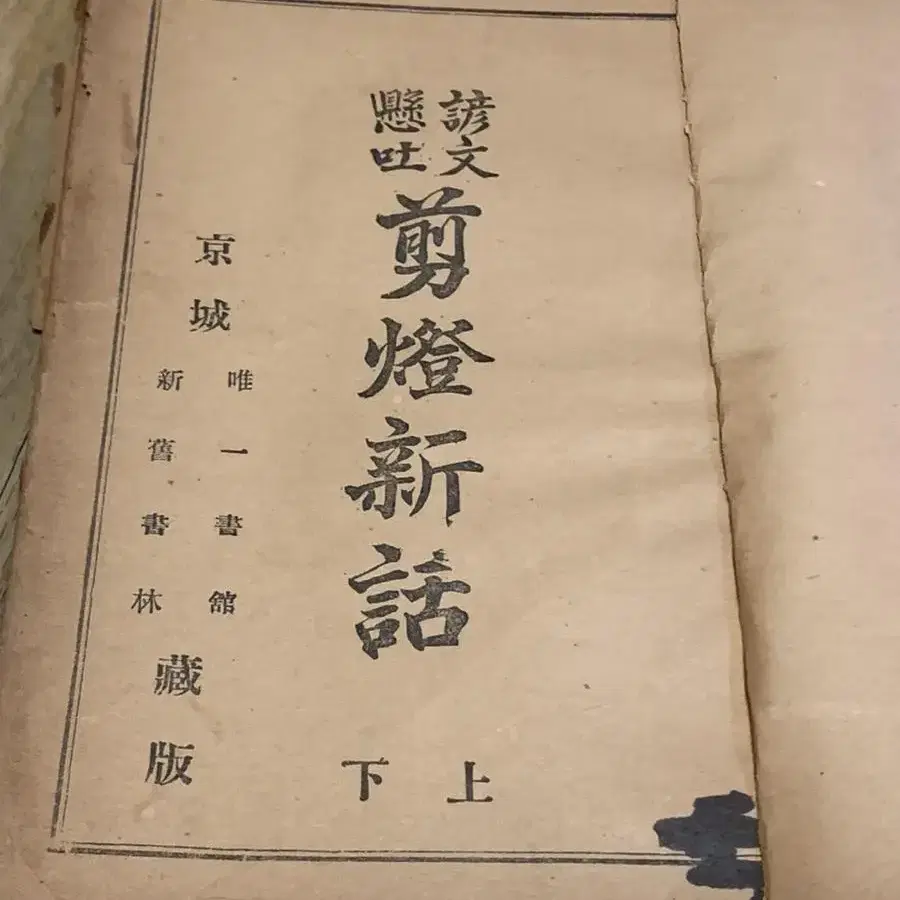 諺文
懸吐
剪燈新話
上下
京城
唯一書舘
新舊書林
藏版